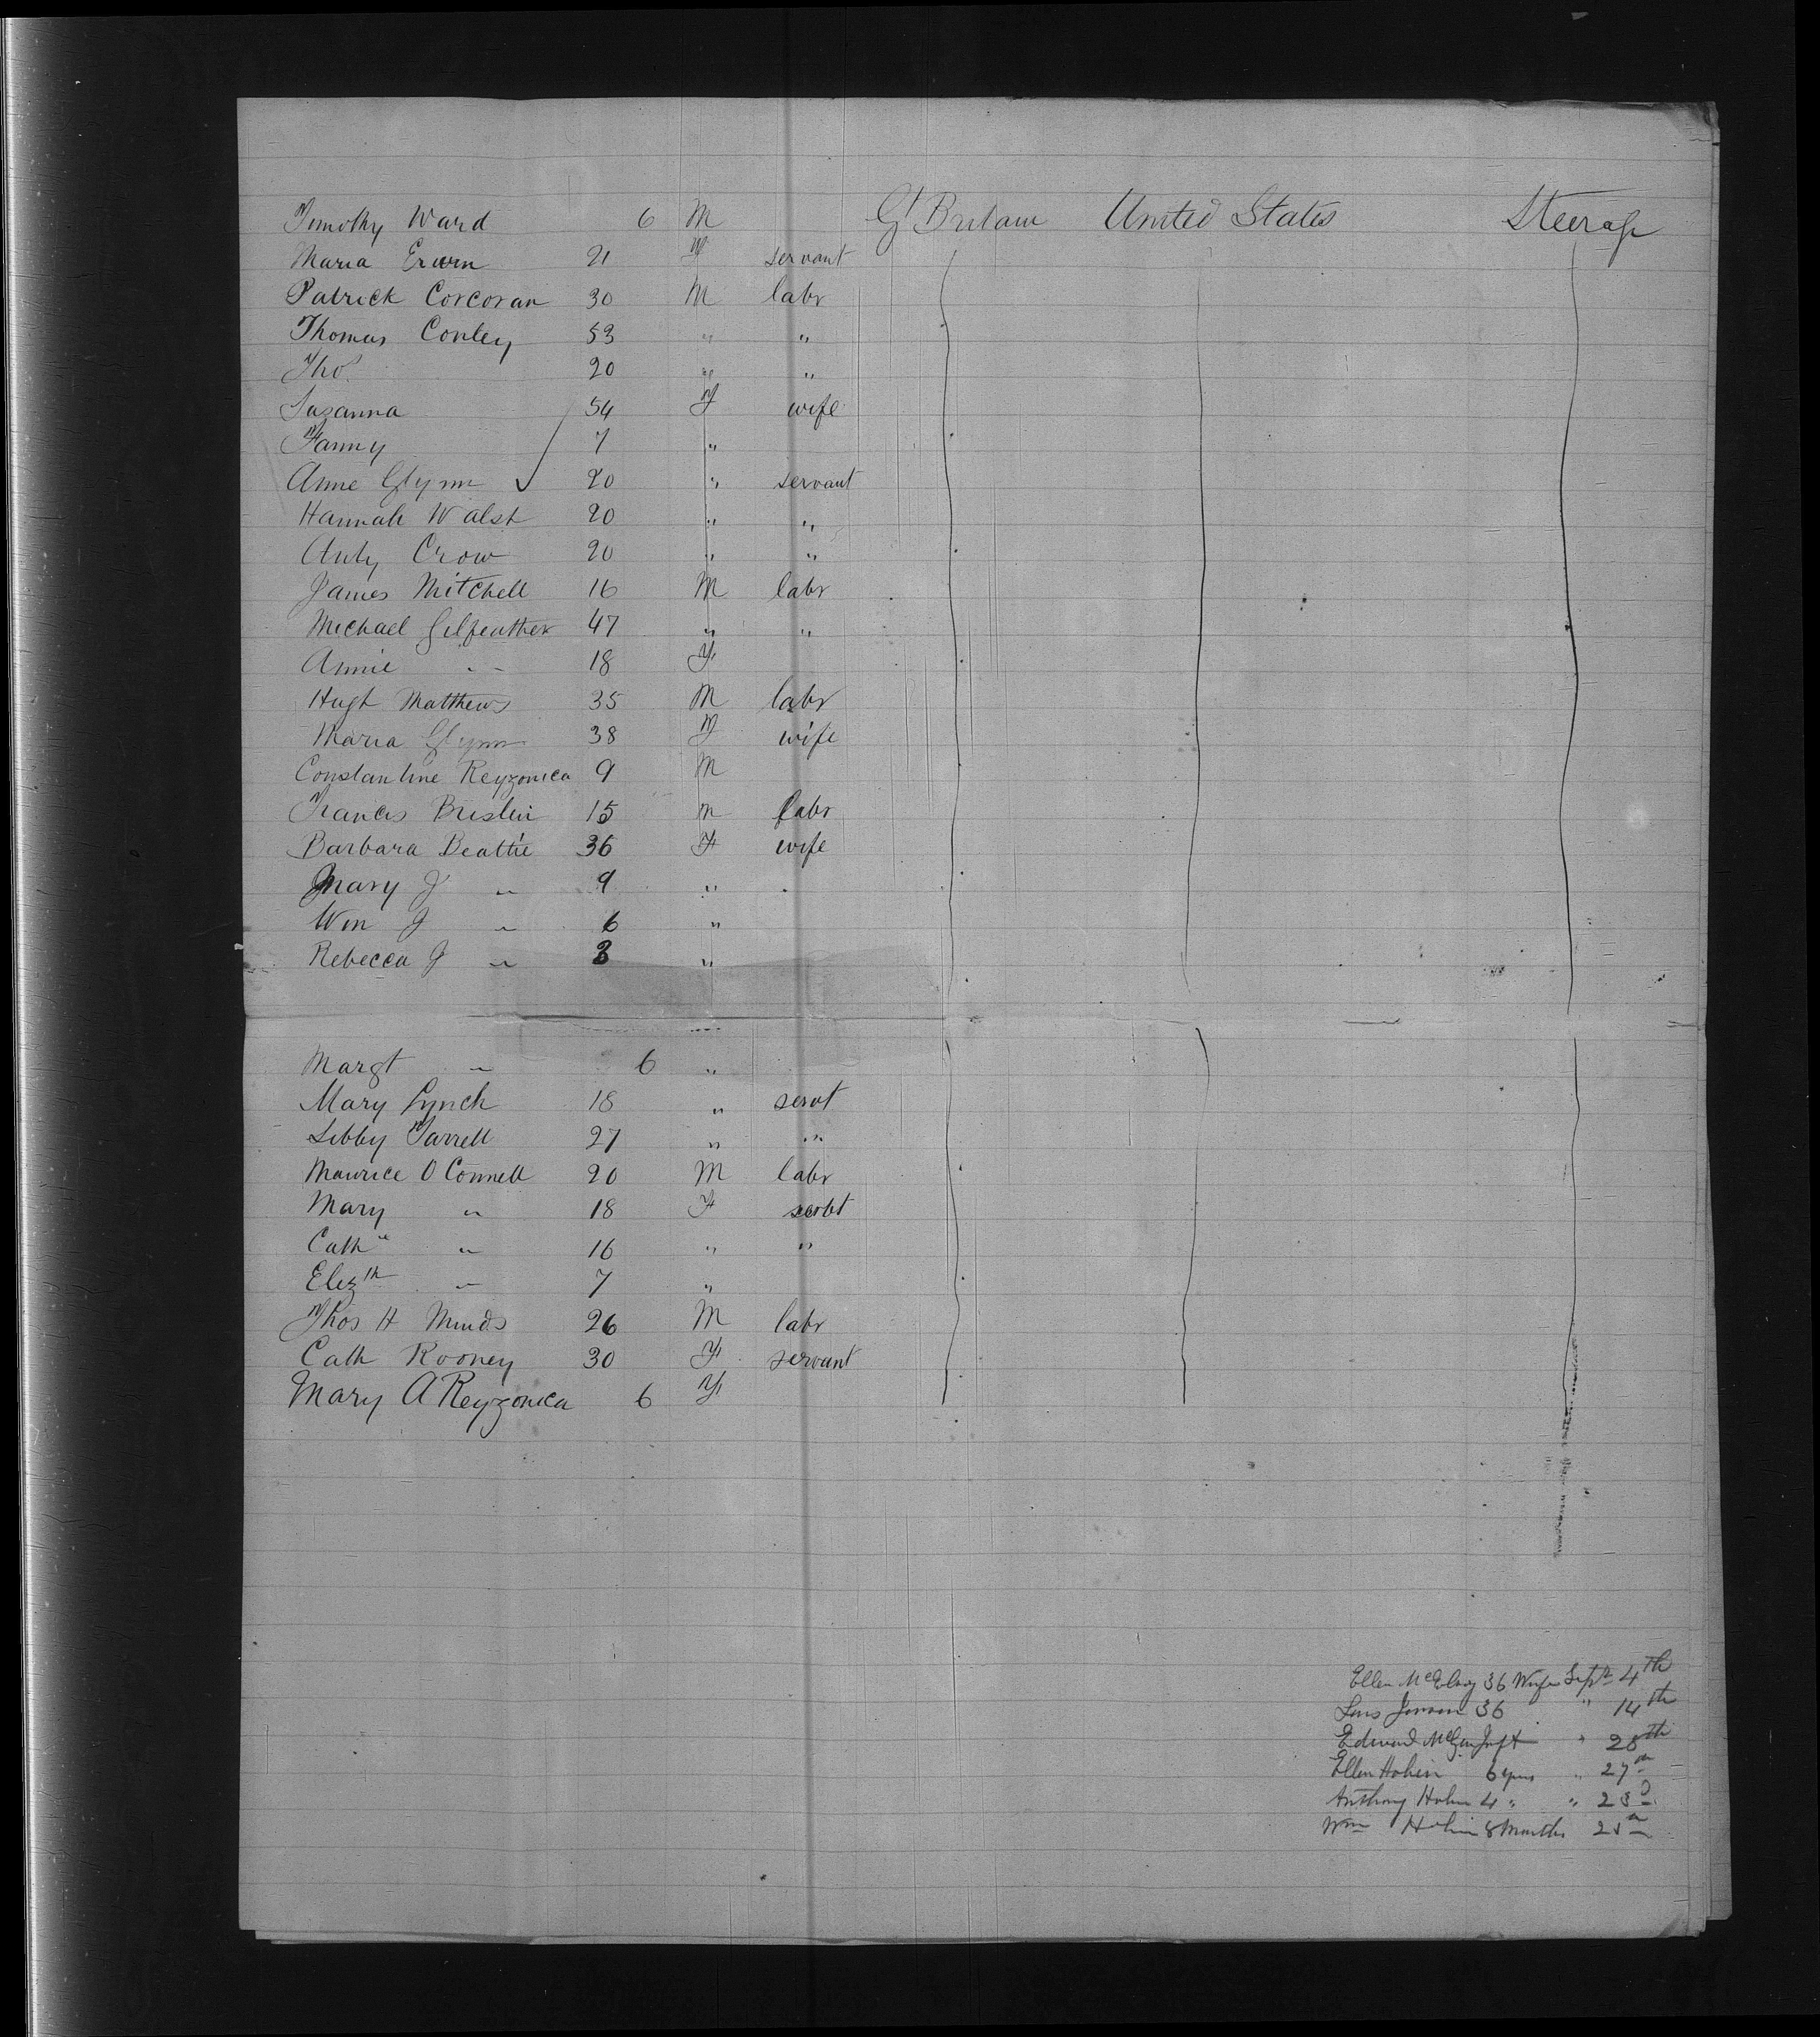 Timothy Ward 6 M Gt Britain United States Steerage
Maria Erwin 21 F servant
Patrick Corcoran 30 M labr
Thomas Conley 53 " "
Thos 20 " "
Suzanna 54 F wife
Fanny 7 "
Anne Glynn ✓ 20 " servant
Hannah Walsh 20 " "
Anty Crow 20 " "
James Mitchell 16 M labr
Michael Gilfeather 47 " "
Annie " 18 F
Hugh Matthews 35 M labr
Maria Glynn 38 F wife
Constantine Reyzonica 9 M
Francis Breslin 15 M labr
Barbara Beattie 36 F wife
Mary J " 9 "
Wm J " 6 "
Rebecca J " 3 "
Margt " 6 "
Mary Lynch 18 " servt
Libby Farrell 27 " "
Maurice O Connell 20 M labr
Mary " 18 F servt
Cath " 16 " "
Elizth " 7 "
Thos H Minds 26 M labr
Cath Rooney 30 F servant
Mary A Reyzonica 6 F
Ellen McElroy 36 Wife Sept 4th
36 " 14th
Edward Inft " 28th
Ellen Hohin 6 yrs " 27th
Anthony Hohin 4 " " 23d
Wm Hohin 8 Months